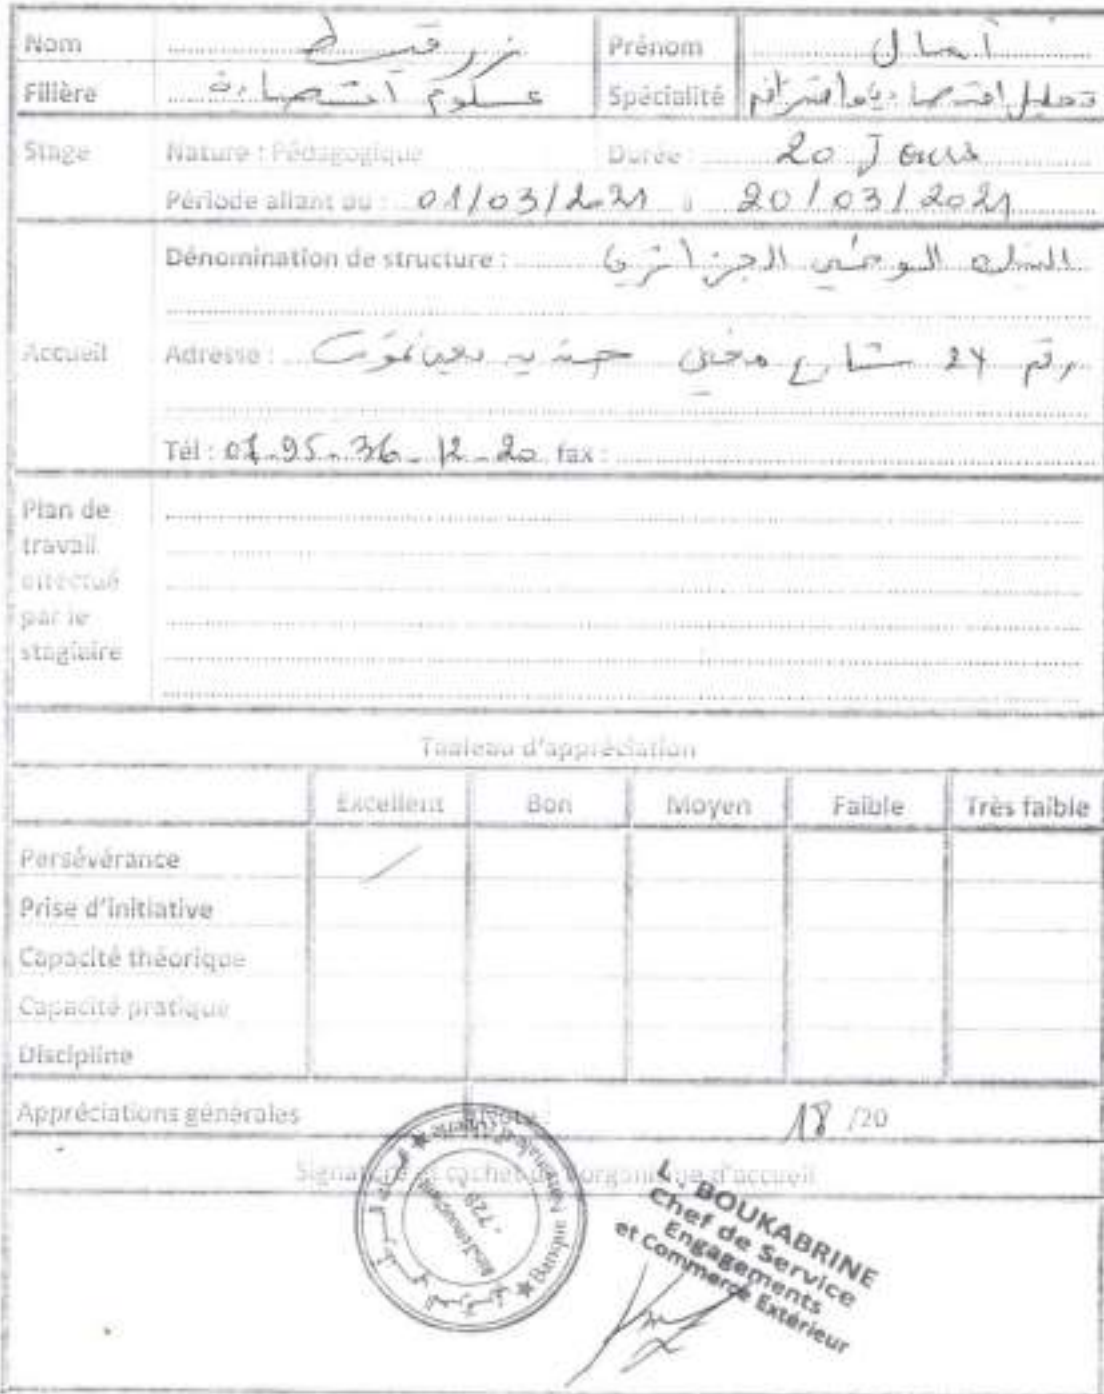 Nom زرقيط Prénom آمال
Filière علوم اقتصادية Spécialité تحليل اقتصادي و استشراف
Stage Nature : Pédagogique Durée : 20 Jours
Période allant du : 01/03/2021 à 20/03/2021
Dénomination de structure : البنك الوطني الجزائري
Accueil Adresse : رقم 24 شارع مغني
Tél : 07-95-36-12-20 fax :
Plan de
travail
effectué
par le
stagiaire
Tableau d'appréciation
Excellent Bon Moyen Faible Très faible
Persévérance
Prise d'initiative
Capacité théorique
Capacité pratique
Discipline
Appréciations générales 18 /20
Signature et cachet de l'organisme d'accueil
Banque Nationale d'Algérie
-720-
L. BOUKABRINE
Chef de Service
Engagements
et Commerce Extérieur